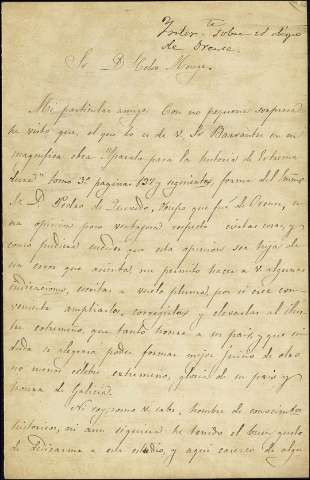 Inter.te sobre el obispo
de Orense.
Sr. D. 
Mi particular amigo: Con no pequeña sorpresa
he visto que, el que lo es de V. Sr. Barrantes en su
magnifica obra "Aparato para la historia de Extrema
dura" tomo 3.º paginas 137 y siguientes, forma del 
Sr. D. Pedro de Quevedo, Obispo que fué de Orense, u-
na opinion poco ventajosa respecto ciertas cosas, y
como pudiera suceder que esta opinion sea hija de
un error que asienta, me permito hacer a V. algunas
indicaciones, escritas a vuela pluma, por si cree con-
veniente ampliarlas, corregirlas y elevarlas al ilus-
tre estremeño, que tanto honra a su pais, y que sin
duda se alegraria poder formar mejor juicio de otro
no menos celebre extremeño, gloria de su pais y
honra de Galicia.
No soy, como V. sabe, hombre de conocimientos
históricos, ni aun siquiera he tenido el buen gusto
de dedicarme a este estudio, y aqui carezco de algu